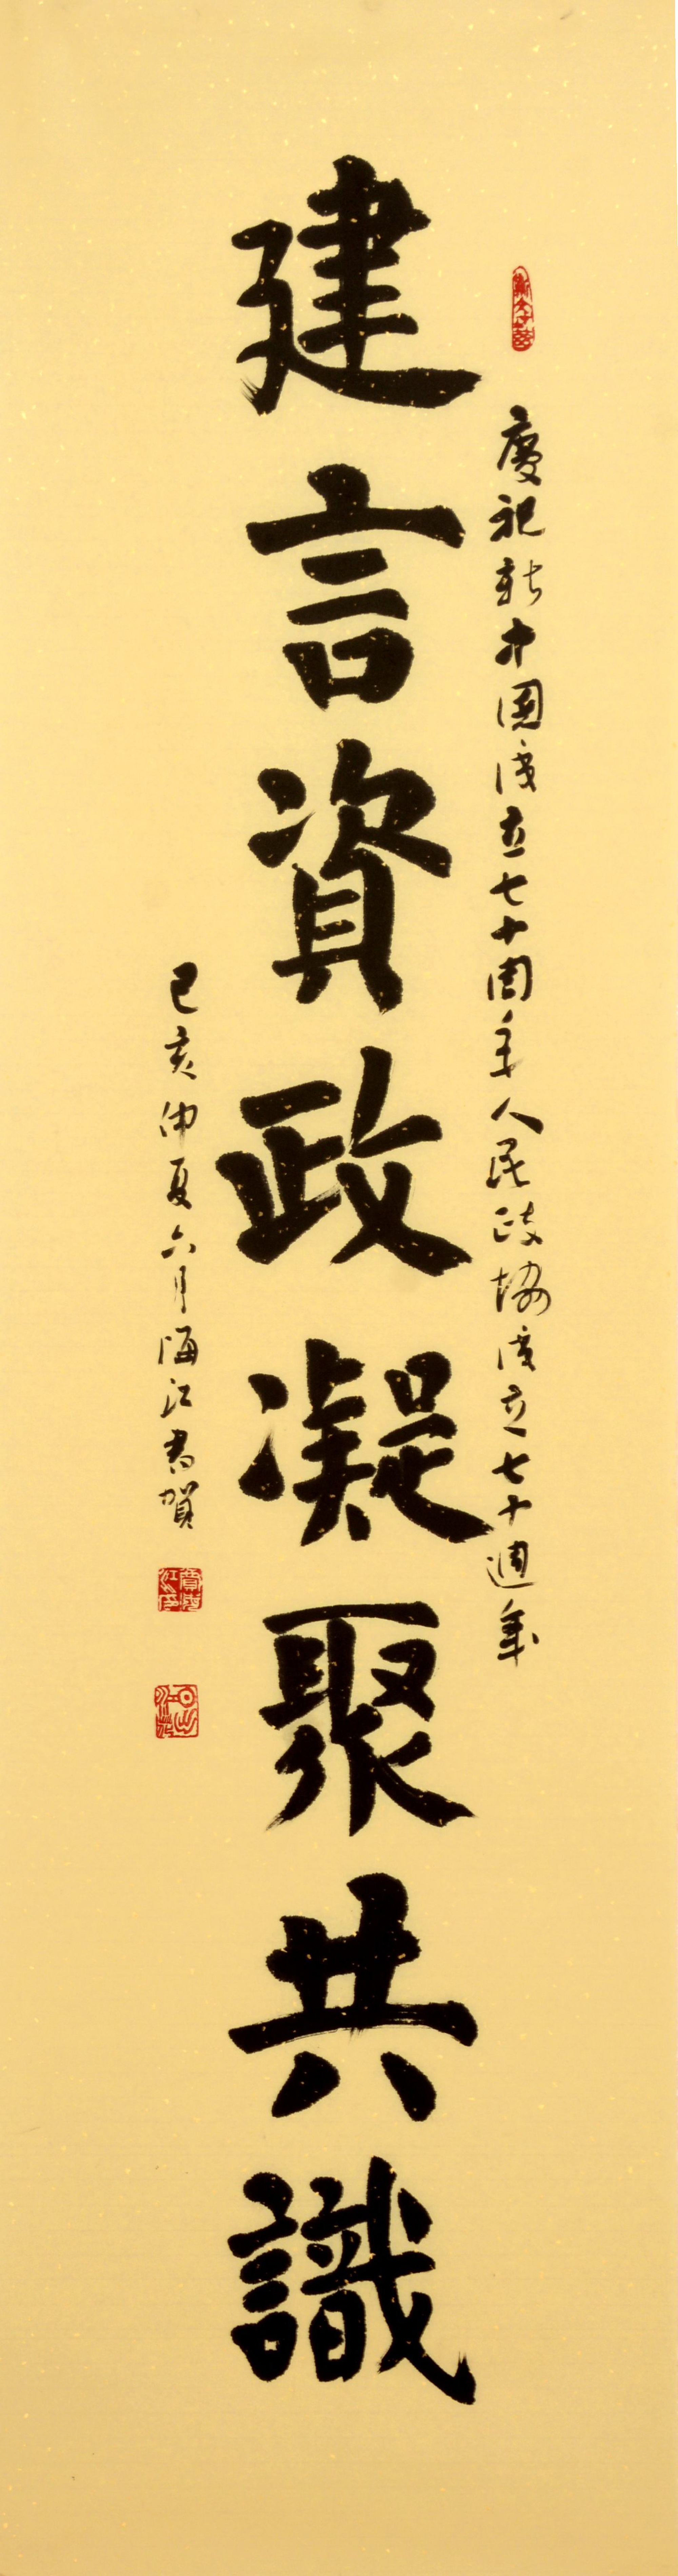 慶祝新中國成立七十周年人民政協成立七十週年
建言資政凝聚共識
己亥仲夏六月海江書賀